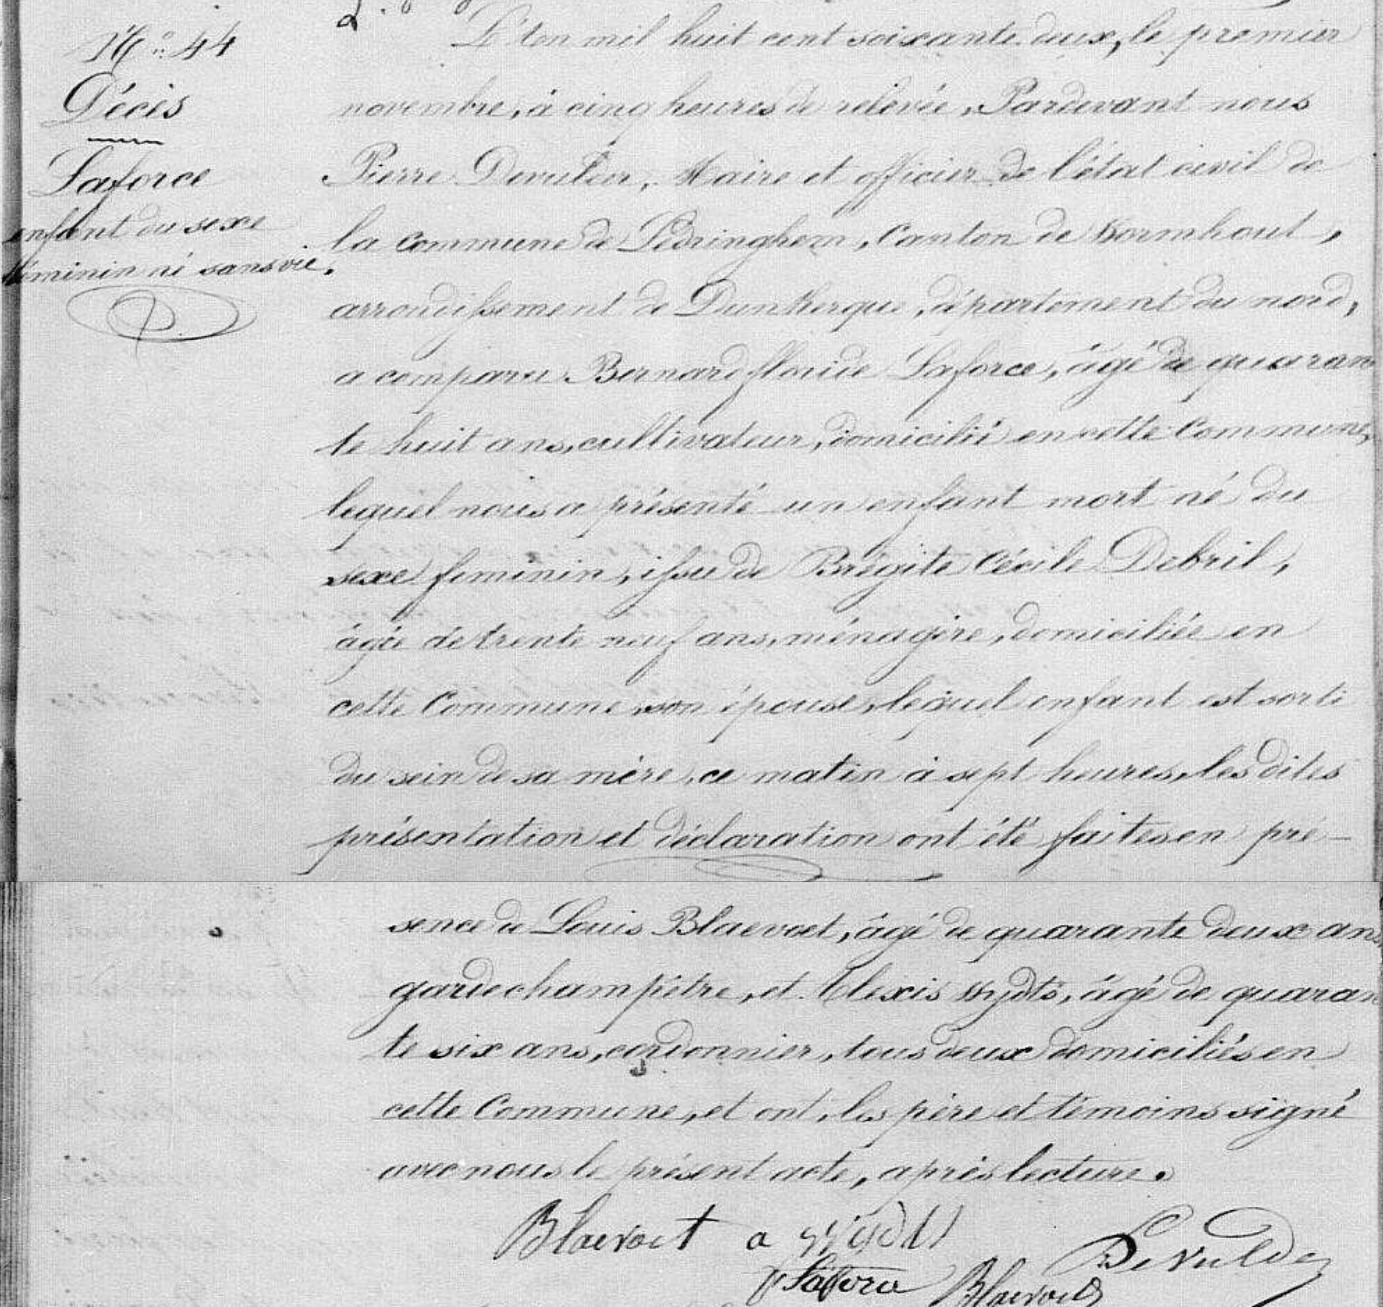 N.º 44
Décès
Laforce
enfant du sexe
féminin né sans vie.
L'an mil huit cent soixante deux, le premier
novembre, à cinq heures de relevée, Pardevant nous
Pierre Devulder, Maire et officier de l'état civil de
la commune de Lédringhem, Canton de Wormhout,
arrondissement de Dunkerque, département du nord,
a comparu Bernard Laforce, âgé de quaran
te huit ans, cultivateur, domicilié en cette Commune,
lequel nous a présenté un enfant mort né du
sexe féminin, issu de Brigite Cécile Debril,
âgée de trente neuf ans, ménagère, domiciliée en
cette Commune, son épouse, lequel enfant est sorti
du sein de sa mère, ce matin à sept heures, les dites
présentation et déclaration ont été faites en pré-
sence de Louis Blaevoet, âgé de quarante deux ans
garde champêtre, et Alexis Wydts, âgé de quaran
te six ans, cordonnier, tous deux domiciliés en
cette Commune, et ont, les père et témoins signé
avec nous le présent acte, après lecture.
Blaevoet a Wijdts Devulder
Laforce Blaevoet